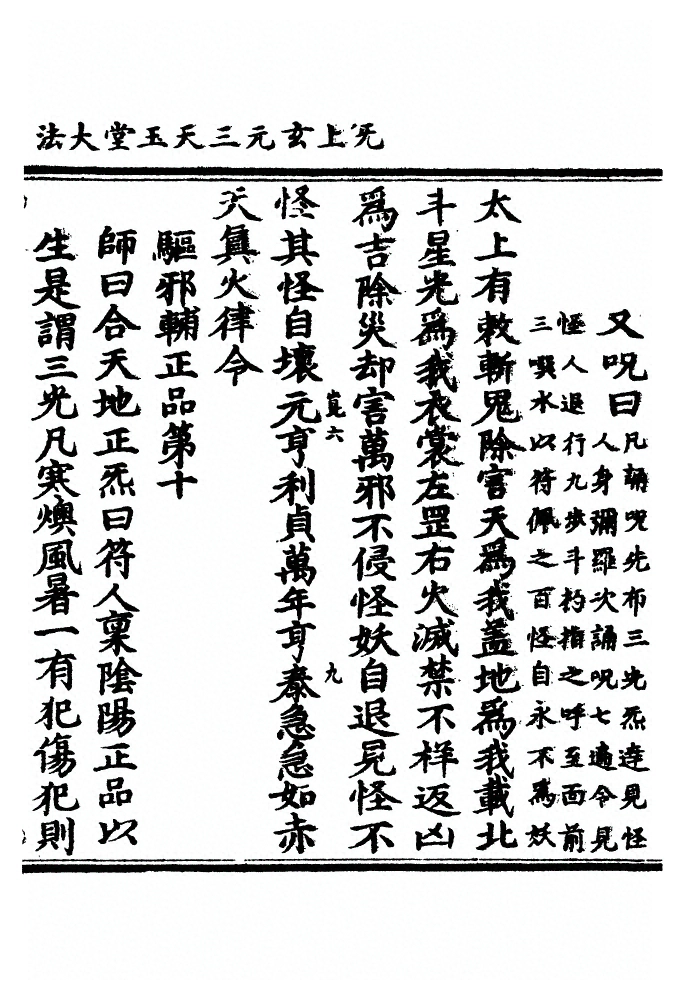 无上玄元三天玉堂大法
又呪曰
凡誦呪先布三光炁達見怪
人身彌羅次誦呪七遍令見
怪人退行九步斗杓指之呼至面前
三噀水以符佩之百怪自永不為妖
太上有敕斬鬼除害天爲我蓋地爲我載北
斗星光爲我衣裳左罡右火滅禁不祥返凶
爲吉除災却害萬邪不侵怪妖自退見怪不
六
九
怪其怪自壞元亨利貞萬年亨泰急急如赤
天眞火律令
驅邪輔正品第十
師曰合天地正炁曰符人稟陰陽正品以
生是謂三光凡寒燠風暑一有犯傷犯則